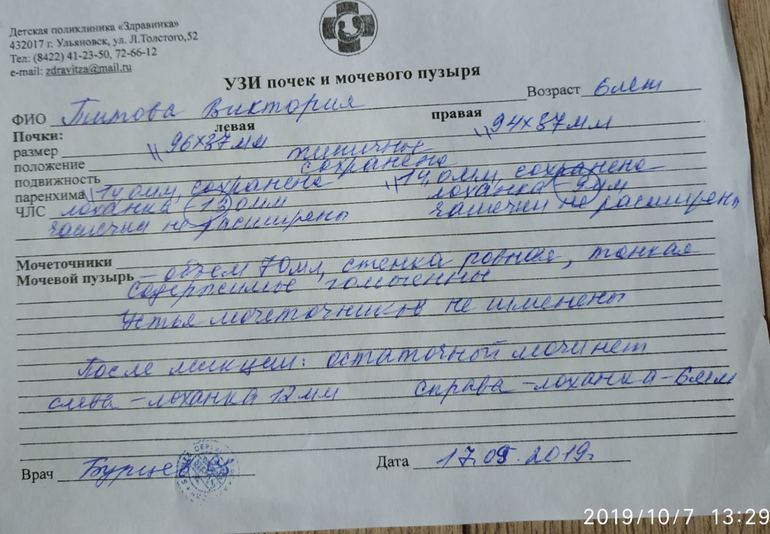 Детская поликлиника «Здравинка»
432017 г. Ульяновск, ул. Л.Толстого,52
Тел: (8422) 41-23-50, 72-66-12
e-mail: zdravitza@mail.ru
УЗИ почек и мочевого пузыря
ФИО Титова Виктория Возраст 6 лет
Почки: левая правая
размер 96×37мм 94×37мм
положение типичные
подвижность сохранена
паренхима 14,0мм, сохранена 14,0мм, сохранена
ЧЛС лоханка - 13,0мм лоханка - мм
чашечки не расширены чашечки не расширены
Мочеточники
Мочевой пузырь - объем 70мл, стенка ровная, тонкая
содержимое
Устья мочеточников не изменены
После микции: остаточной мочи нет
слева - лоханка 12мм справа - лоханка - 6мм
Врач Бурцев
Дата 17.09.2019г
2019/10/7 13:29